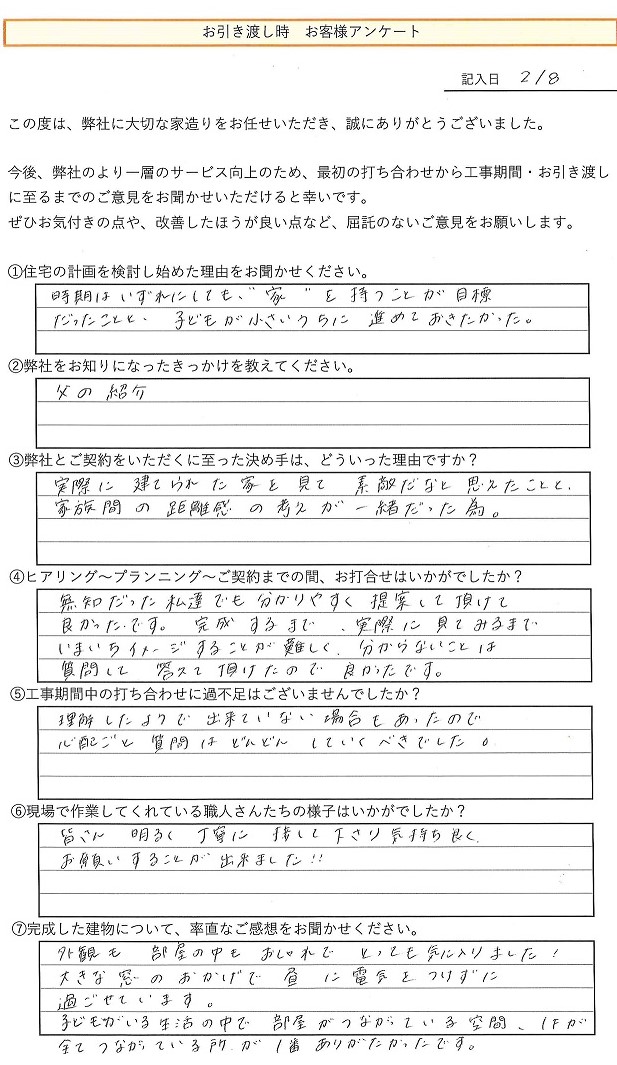 お引き渡し時　お客様アンケート
記入日 2/8
この度は、弊社に大切な家造りをお任せいただき、誠にありがとうございました。
今後、弊社のより一層のサービス向上のため、最初の打ち合わせから工事期間・お引き渡し
に至るまでのご意見をお聞かせいただけると幸いです。
ぜひお気付きの点や、改善したほうが良い点など、屈託のないご意見をお願いします。
①住宅の計画を検討し始めた理由をお聞かせください。
時期はいずれにしても、"家"を持つことが目標
だったことと、子どもが小さいうちに進めておきたかった。
②弊社をお知りになったきっかけを教えてください。
父の紹介
③弊社とご契約をいただくに至った決め手は、どういった理由ですか？
実際に建てられた家を見て素敵だなと思えたことと、
家族間の距離感の考えが一緒だった為。
④ヒアリング～プランニング～ご契約までの間、お打合せはいかがでしたか？
無知だった私達でも分かりやすく提案して頂けて
良かったです。完成するまで、実際に見てみるまで
いまいちイメージすることが難しく、分からないことは
質問して答えて頂けたので良かたです。
⑤工事期間中の打ち合わせに過不足はございませんでしたか？
理解したようで出来ていない場合もあったので
心配ごと質問はどんどんしていくべきでした。
⑥現場で作業してくれている職人さんたちの様子はいかがでしたか？
皆さん明るく丁寧に接して下さり気持ち良く
お願いすることが出来ました!!
⑦完成した建物について、率直なご感想をお聞かせください。
外観も部屋の中もおしゃれでとっても気に入りました!
大きな窓のおかげで昼に電気をつけずに
過ごせています。
子どもがいる生活の中で部屋がつながっている空間、1Fが
全てつながっている所が1番ありがたかったです。